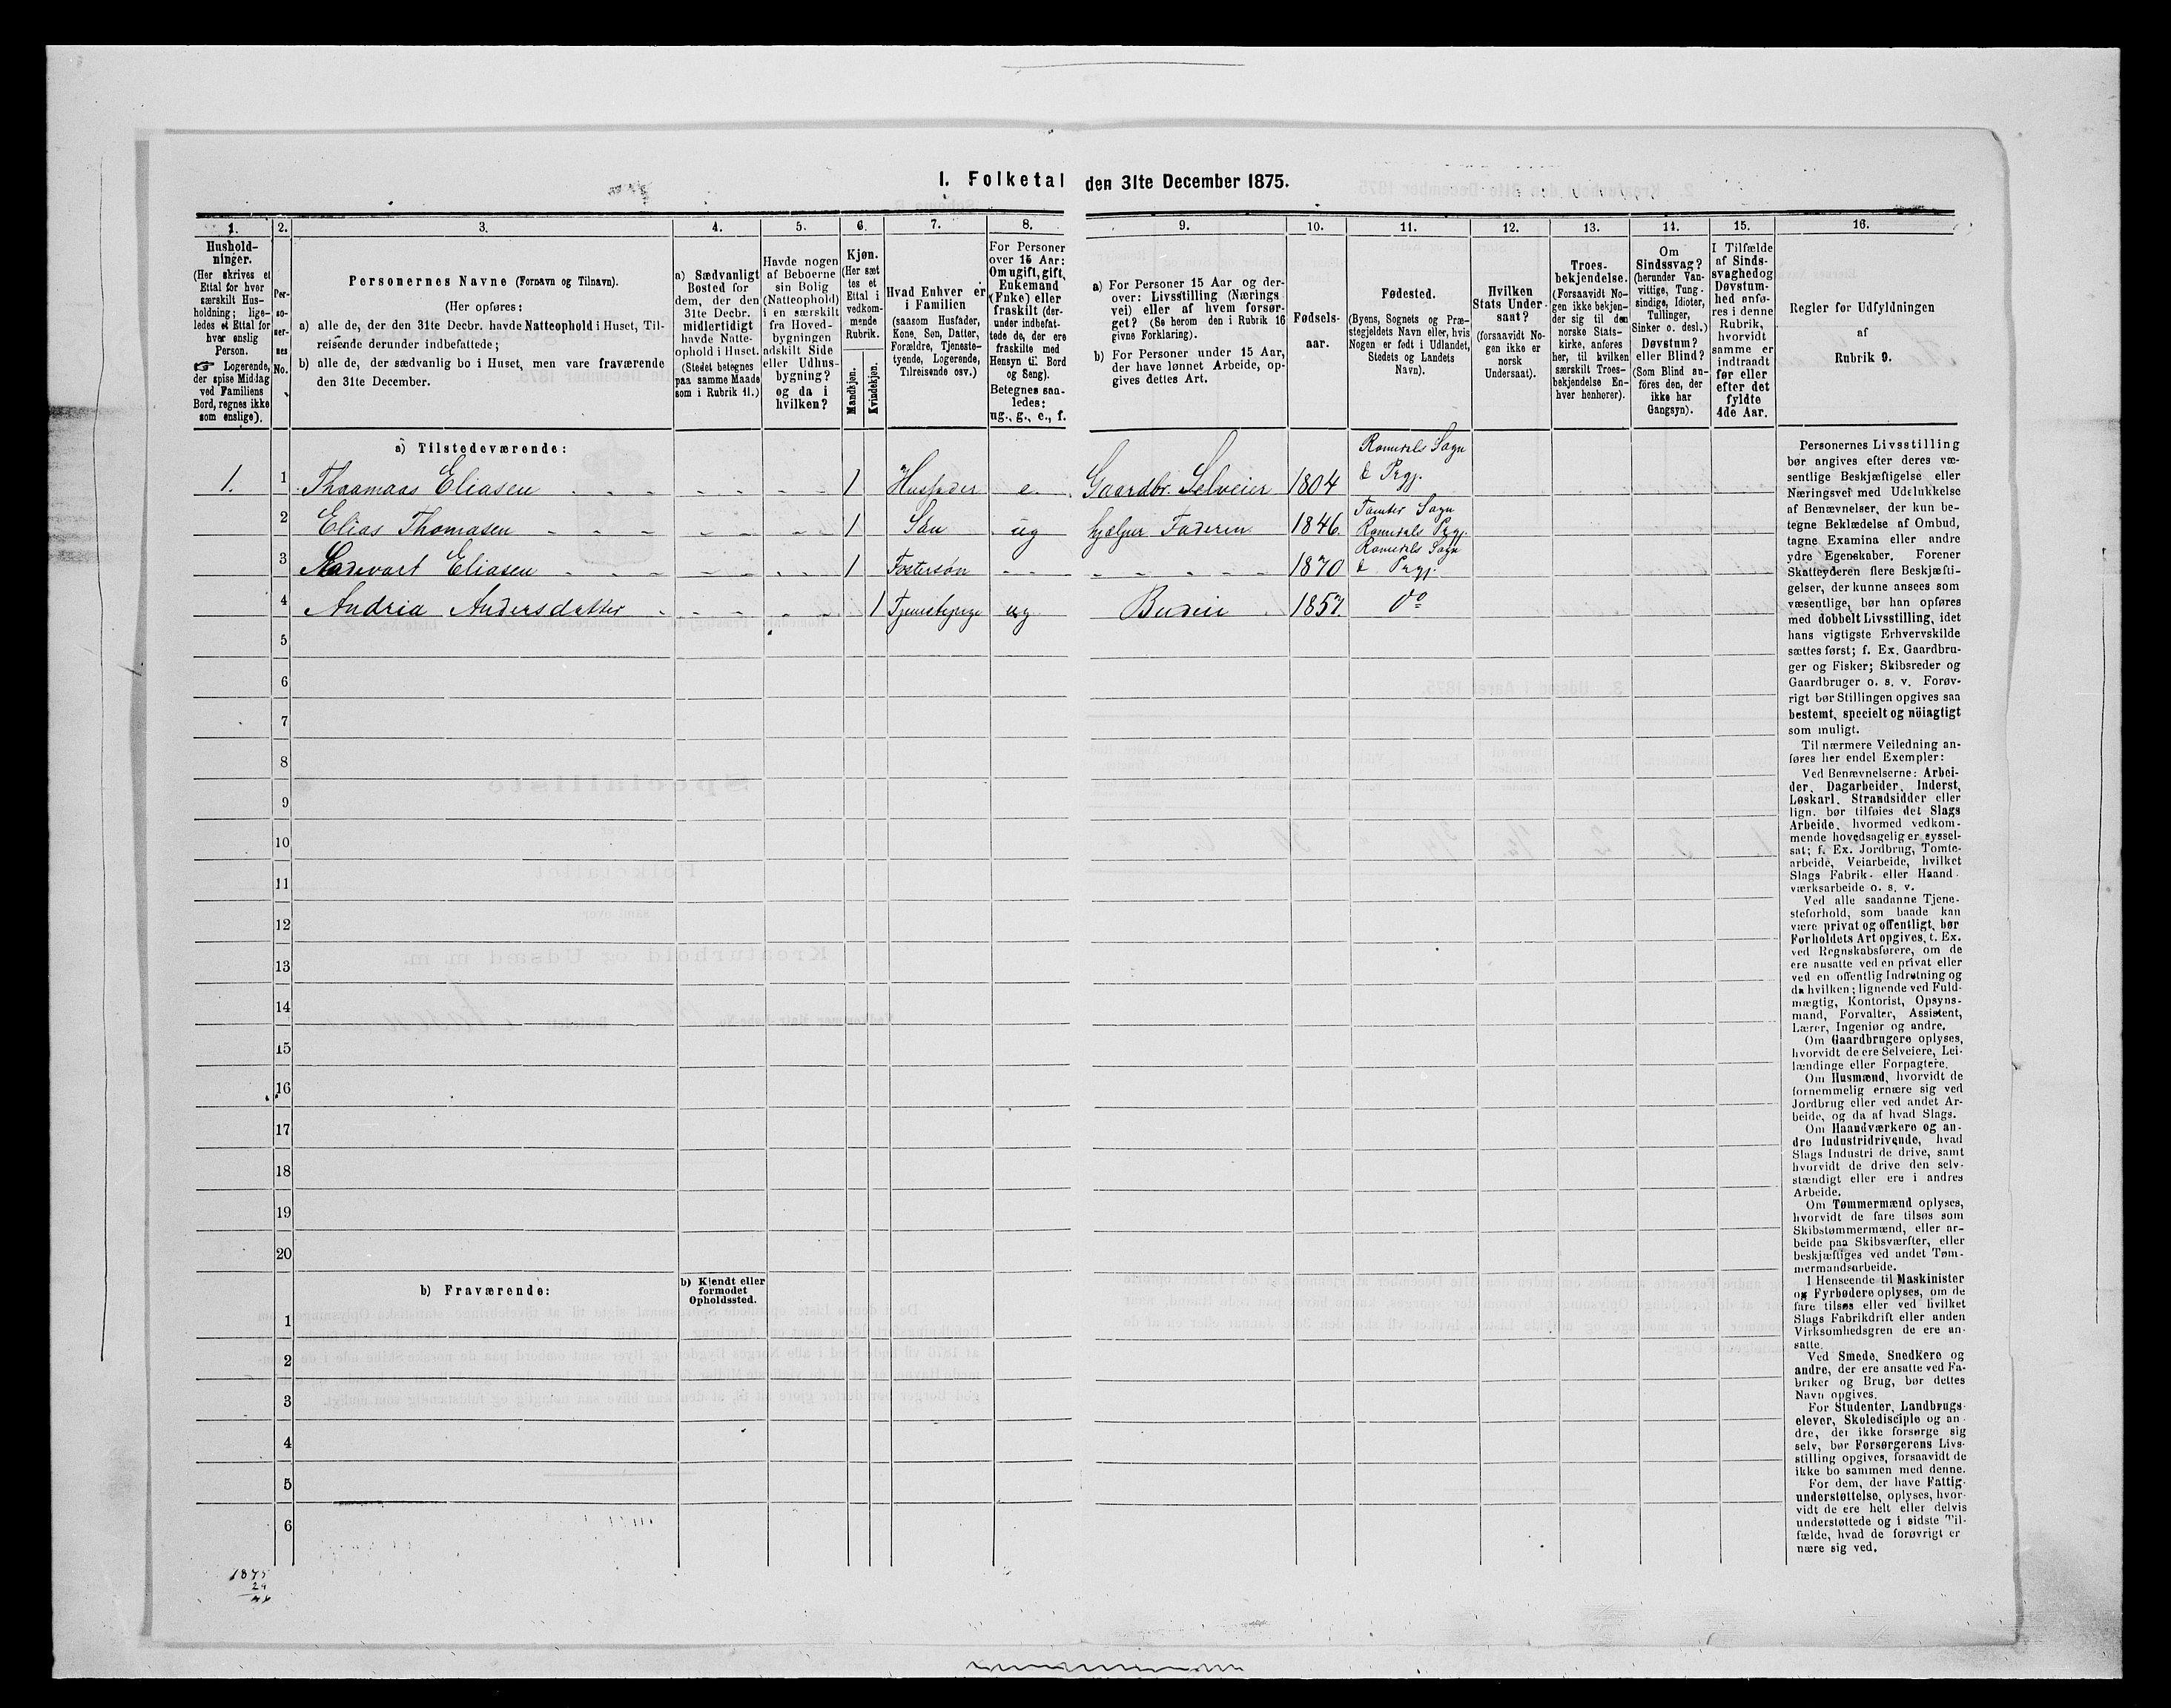 I. Folketal den 31te December 1875.
1.
Hushold-
ninger.
(Her skrives et
Ettal for hver
særskilt Hus-
holdning; lige-
ledes et Ettal for
hver enslig
Person.
☞ Logerende,
der spise Middag
ved Familiens
Bord, regnes ikke
som enslige).
2.
Per-
so-
ner-
nes
No.
3.
Personernes Navne (Fornavn og Tilnavn).
(Her opføres:
a) alle de, der den 31te Decbr. havde Natteophold i Huset, Til-
reisende derunder indbefattede;
b) alle de, der sædvanlig bo i Huset, men vare fraværende
den 31te December.
4.
a) Sædvanligt
Bosted for
dem, der den
31te Decbr.
midlertidigt
havde Natte-
ophold i Huset.
(Stedet betegnes
paa samme Maade
som i Rubrik 11.)
5.
Havde nogen
af Beboerne
sin Bolig
(Natteophold)
i en særskilt
fra Hoved-
bygningen
adskilt Side
eller Udhus-
bygning?
og da i
hvilken?
6.
Kjøn.
(Her sæt
tes et
Ettal i
vedkom-
mende
Rubrik.
Mandkjøn.
Kvindekjøn.
7.
Hvad Enhver er
i Familien
(saasom Husfader,
Kone, Søn, Datter,
Forældre, Tjeneste-
tyende, Logerende,
Tilreisende osv.)
8.
For Personer
over 15 Aar:
Om ugift, gift,
Enkemand
(Enke) eller
fraskilt (der-
under indbefat-
tede de, der ere
fraskilte med
Hensyn til Bord
og Seng).
Betegnes saa-
ledes:
ug., g., e., f.
9.
a) For Personer 15 Aar og der-
over: Livsstilling (Nærings
vei) eller af hvem forsør-
get? (Se herom den i Rubrik 16
givne Forklaring).
b) For Personer under 15 Aar,
der have lønnet Arbeide, op-
gives dettes Art.
10.
Fødsels-
aar.
11.
Fødested.
(Byens, Sognets og Præ-
stegjeldets Navn eller, hvis
Nogen er født i Udlandet,
Stedets og Landets
Navn).
12.
Hvilken
Stats Under-
saat?
(forsaavidt No-
gen ikke er
norsk
Undersaat).
13.
Troes-
bekjendelse.
(Forsaavidt No-
gen ikke bekjen-
der sig til den
norske Stats-
kirke, anføres
her, til hvilken
særskilt Troes-
bekjendelse En-
hver henhører).
14.
Om
Sindssvag?
(herunder Van-
vittige, Tung-
sindige, Idioter,
Tullinger,
Sinker o. desl.)
Døvstum?
eller Blind?
(Som Blind an-
føres den, der
ikke har
Gangsyn).
15.
I Tilfælde
af Sinds-
svaghed og
Døvstum-
hed anfø-
res i denne
Rubrik,
hvorvidt
samme er
indtraadt
før eller
efter det
fyldte
4de Aar.
16.
Regler for Udfyldningen
af
Rubrik 9.
a) Tilstedeværende:
1. 1 Thaamaas Eliasen 1 Husfader e. Gaardbr. Selveier 1804 Romedals Sogn & Prgj.
2 Elias Thomasen 1 Søn ug hjælper Faderen 1846. Tomter Sogn Romedals Prgj.
3 Eliasen 1 Fostersøn 1870 Romedals Sogn & Prgj.
4 Andria Andersdatter 1 ug Budeie 1857. do
5
6
7
8
9
10
11
12
13
14
15
16
17
18
19
20
b) Fraværende:
b) Kjendt eller
formodet
Opholdssted.
1
2
3
4
5
6
1875
Personernes Livsstilling
bør angives efter deres væ-
sentlige Beskjæftigelse eller
Næringsvei med Udelukkelse
af Benævnelser, der kun be-
tegne Beklædelse af Ombud,
tagne Examina eller andre
ydre Egenskaber. Forener
Skatteyderen flere Beskjæfti-
gelser, der kunne ansees som
væsentlige, bør han opføres
med dobbelt Livsstilling, idet
hans vigtigste Erhvervskilde
sættes først; f. Ex. Gaardbru-
ger og Fisker; Skibsreder og
Gaardbruger o. s. v. Forøv-
rigt bør Stillingen opgives saa
bestemt, specielt og nöiagtigt
som muligt.
Til nærmere Veiledning an-
føres her endel Exempler:
Ved Benævnelserne: Arbei-
der, Dagarbeider, Inderst,
Løskarl, Strandsidder eller
lign. bør tilføies det Slags
Arbeide, hvormed vedkom-
mende hovedsagelig er syssel-
sat; f. Ex. Jordbrug, Tomte-
arbeide, Veiarbeide, hvilket
Slags Fabrik- eller Haand-
værksarbeide o. s. v.
Ved alle saadanne Tjene-
steforhold, som baade kan
være privat og offentligt, bør
Forholdets Art opgives, t. Ex.
ved Regnskabsførere, om de
ere ansatte ved en privat eller
ved en offentlig Indretning og
da hvilken; lignende ved Fuld-
mægtig, Kontorist, Opsyns-
mand, Forvalter, Assistent,
Lærer, Ingeniør og andre.
Om Gaardbrugere oplyses,
hvorvidt de ere Selveiere, Lei-
lændinge eller Forpagtere.
Om Husmænd, hvorvidt de
fornemmelig ernære sig ved
Jordbrug eller ved andet Ar-
beide, og da af hvad Slags.
Om Haandværkere og an-
dre Industridrivende, hvad
Slags Industri de drive, samt
hvorvidt de drive den selv-
stændigt eller ere i andres
Arbeide.
Om Tømmermænd oplyses,
hvorvidt de fare tilsøs som
Skibstømmermænd, eller ar-
beide paa Skibsværfter, eller
beskjæftiges ved andet Tøm-
mermandsarbeide.
I Henseende til Maskinister
og Fyrbødere oplyses, om de
fare tilsøs eller ved hvilket
Slags Fabrikdrift eller anden
Virksomhedsgren de ere an-
satte.
Ved Smede, Snedkere og
andre, der ere ansatte ved Fa-
briker og Brug, bør dettes
Navn opgives.
For Studenter, Landbrugs-
elever, Skoledisciple og an-
dre, der ikke forsørge sig
selv, bør Forsørgerens Livs-
stilling opgives, forsaavidt de
ikke bo sammen med denne.
For dem, der have Fattig-
understøttelse, oplyses, hvor-
vidt de ere helt eller delvis
understøttede og i sidste Til-
fælde, hvad de forøvrigt er
nære sig ved.